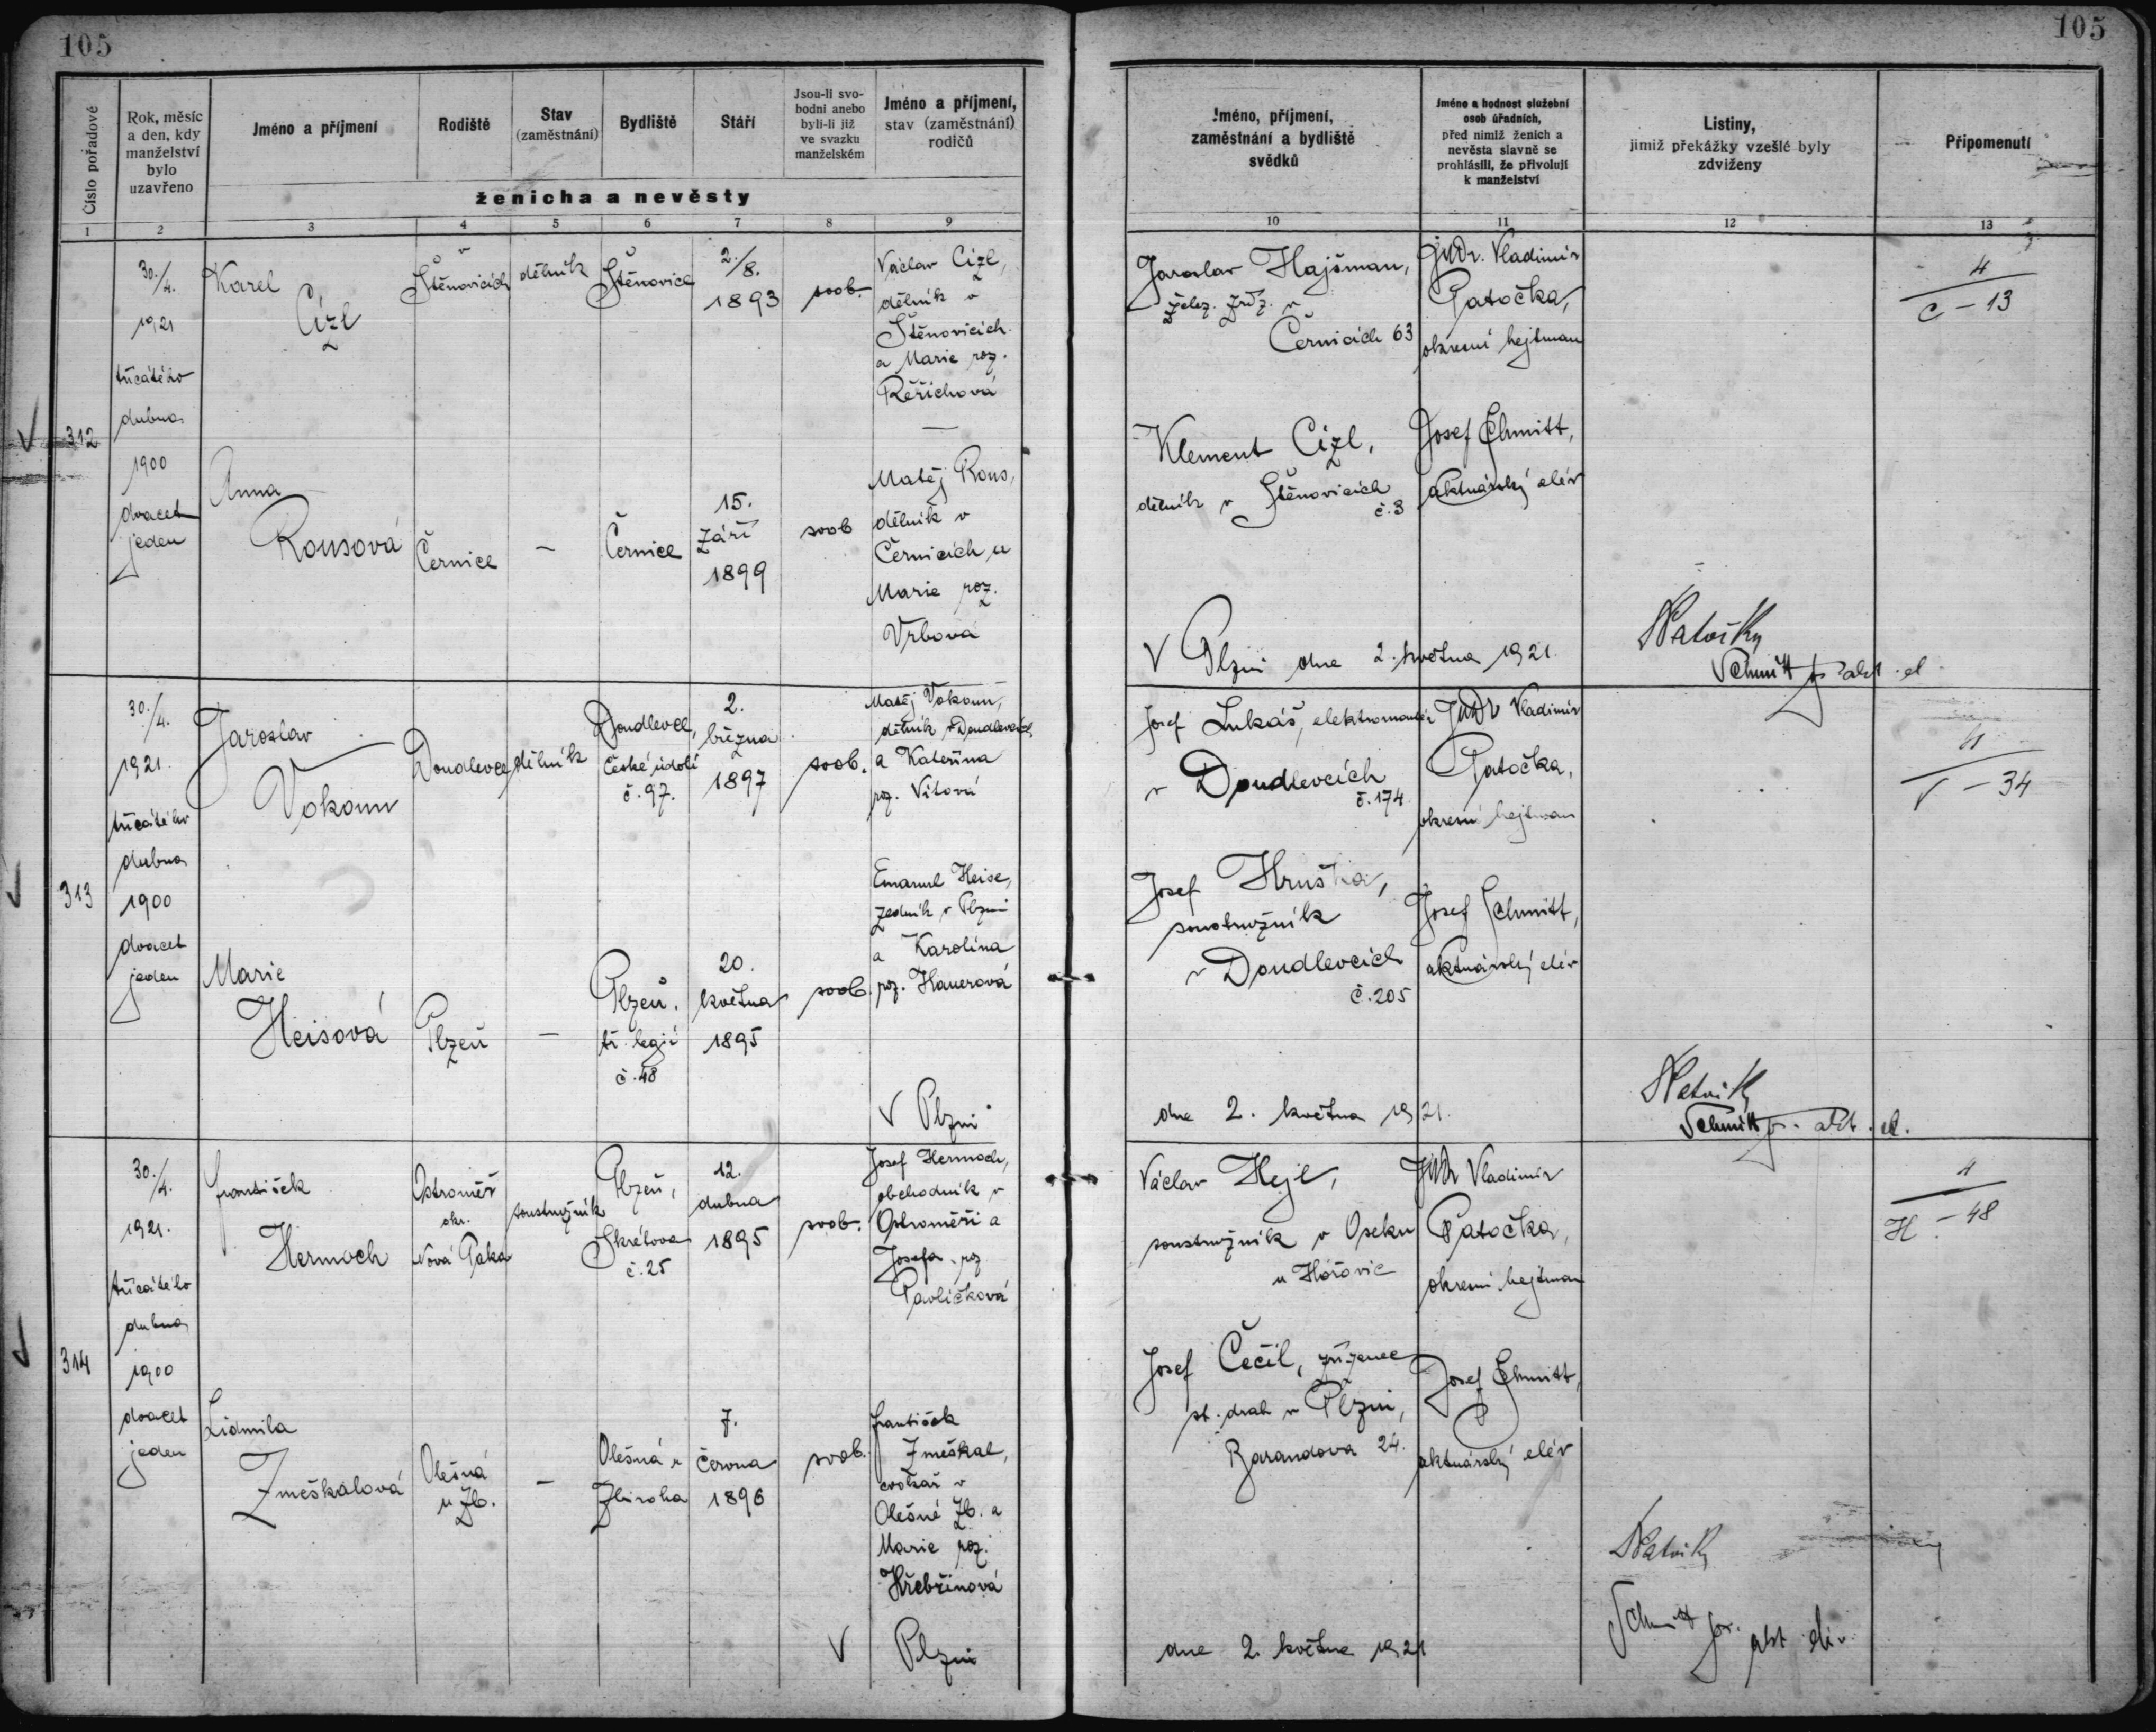 105
105
Číslo pořadové
Rok, měsíc
a den, kdy
manželství
bylo
uzavřeno
Jméno a příjmení
Rodiště
Stav
(zaměstnání)
Bydliště
Stáří
Jsou-li svo-
bodni anebo
byli-li již
ve svazku
manželském
Jméno a příjmení,
stav (zaměstnání)
rodičů
ženicha a nevěsty
Jméno, příjmení,
zaměstnání a bydliště
svědků
Jméno a hodnost služební
osob úřadních,
před nimiž ženich a
nevěsta slavně se
prohlásili, že přivolují
k manželství
Listiny,
jimiž překážky vzešlé byly
zdviženy
Připomenutí
1 2 3 4 5 6 7 8 9 10 11 12 13
312
30./4.
1921
třicátého
dubna
1900
dvacet
jeden
Karel
Cízl
Štěnovicích
dělník
Štěnovice
2./8.
1893
svob.
Václav Cízl,
dělník v
Štěnovicích
a Marie roz.
Řeřichová
Anna
Rousová
Černice
—
Černice
15.
září
1899
svob
Matěj Rous,
dělník v
Černicích a
Marie roz.
Vrbová
Jaroslav Hajšman,
želez. zříz. v
Černicích 63
Klement Cízl,
dělník v Štěnovicích
č. 3
JUDr. Vladimír
Patočka,
okresní hejtman
Josef Schmitt,
aktuárský elév
4
C – 13
V Plzni dne 2. května 1921.
Schmitt akt. el.
313
30./4.
1921.
třicátého
dubna
1900
dvacet
jeden
Jaroslav
Vokoun
Doudlevce
dělník
Doudlevce,
České údolí
č. 97.
2.
března
1897
svob.
Matěj Vokoun,
dělník v Doudlevcích
a Kateřina
roz. Vítová
Marie
Heisová
Plzeň
—
Plzeň,
tř. legií
č. 48
20.
května
1895
svob.
Emanuel Heise,
zedník v Plzni
a Karolína
roz. Hauerová
Josef Lukáš, elektromontér
v Doudlevcích
č. 174.
Josef Hruška,
soustružník
v Doudlevcích
č. 205
JUDr Vladimír
Patočka,
okresní hejtman
Josef Schmitt,
aktuárský elév
4
V – 34
V Plzni dne 2. května 1921.
Schmitt akt. el.
314
30./4.
1921.
třicátého
dubna
1900
dvacet
jeden
František
Hermoch
Ostroměř
okr.
Nová Paka
soustružník
Plzeň,
Škrétova
č. 25
12.
dubna
1895
svob.
Josef Hermoch,
obchodník v
Ostroměři a
Josefa roz
Pavlíčková
Lidmila
Zmeškalová
Olešná
u Zb.
—
Olešná u
Zbiroha
7.
června
1896
svob.
František
Zmeškal,
cvočkař v
Olešné Zb. a
Marie roz.
Hřebřinová
Václav Hejl,
soustružník v Oseku
u Hořovic
Josef Čečil, zřízenec
st. drah v Plzni,
Barandova 24.
JUDr Vladimír
Patočka,
okresní hejtman
Josef Schmitt,
aktuárský elév
4
H – 48
V Plzni dne 2. května 1921
Schmitt akt. elév